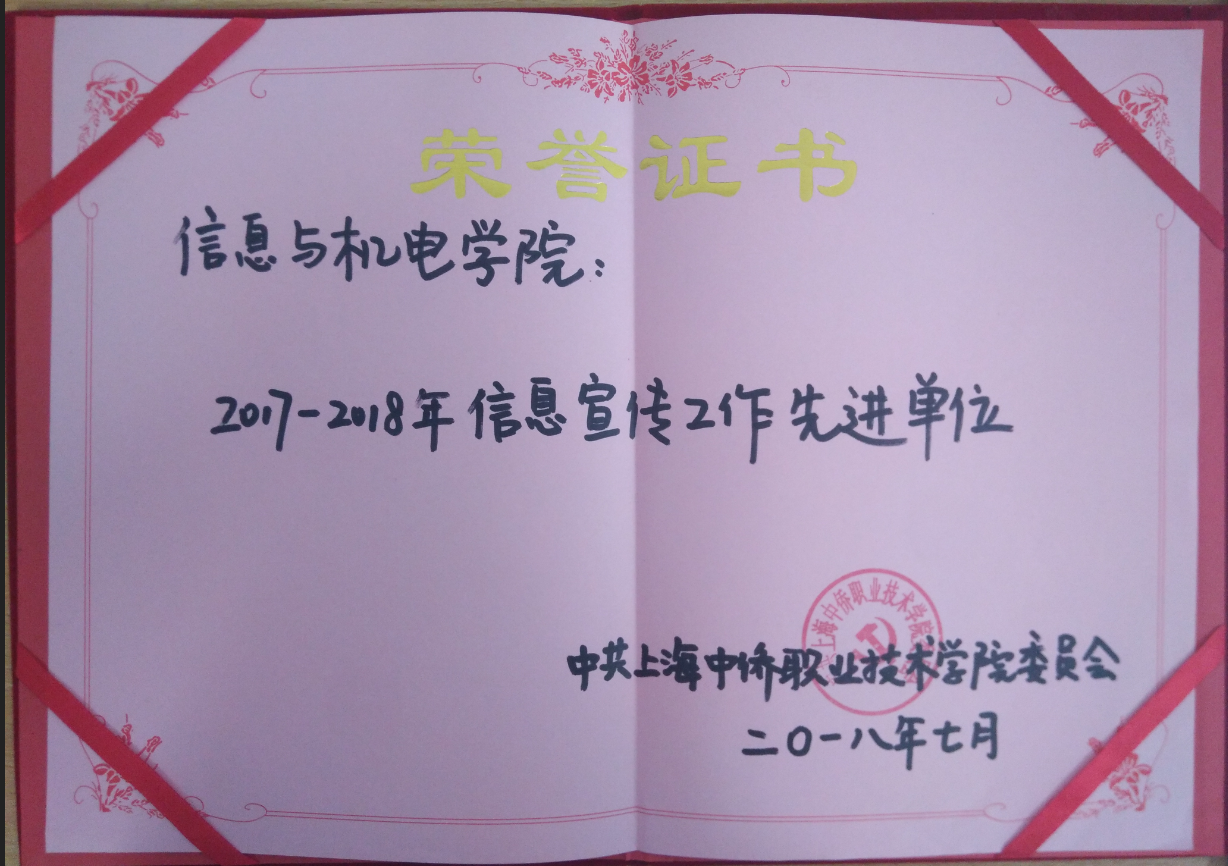 荣誉证书
信息与机电学院:
2017-2018年信息宣传工作先进单位
上海中侨职业技术学院
中共上海中侨职业技术学院委员会
二〇一八年七月